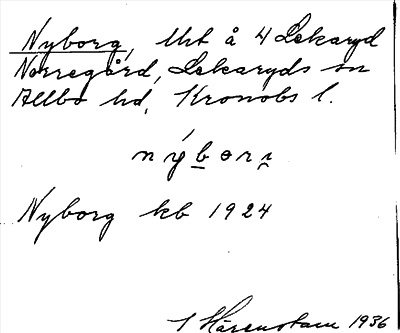 Nyborg, lht å 4 Lekaryd
Norregård, Lekaryds sn
Allbo hd, Kronobs l.
nýborı̯
Nyborg kb 1924
I Hårenstam 1936